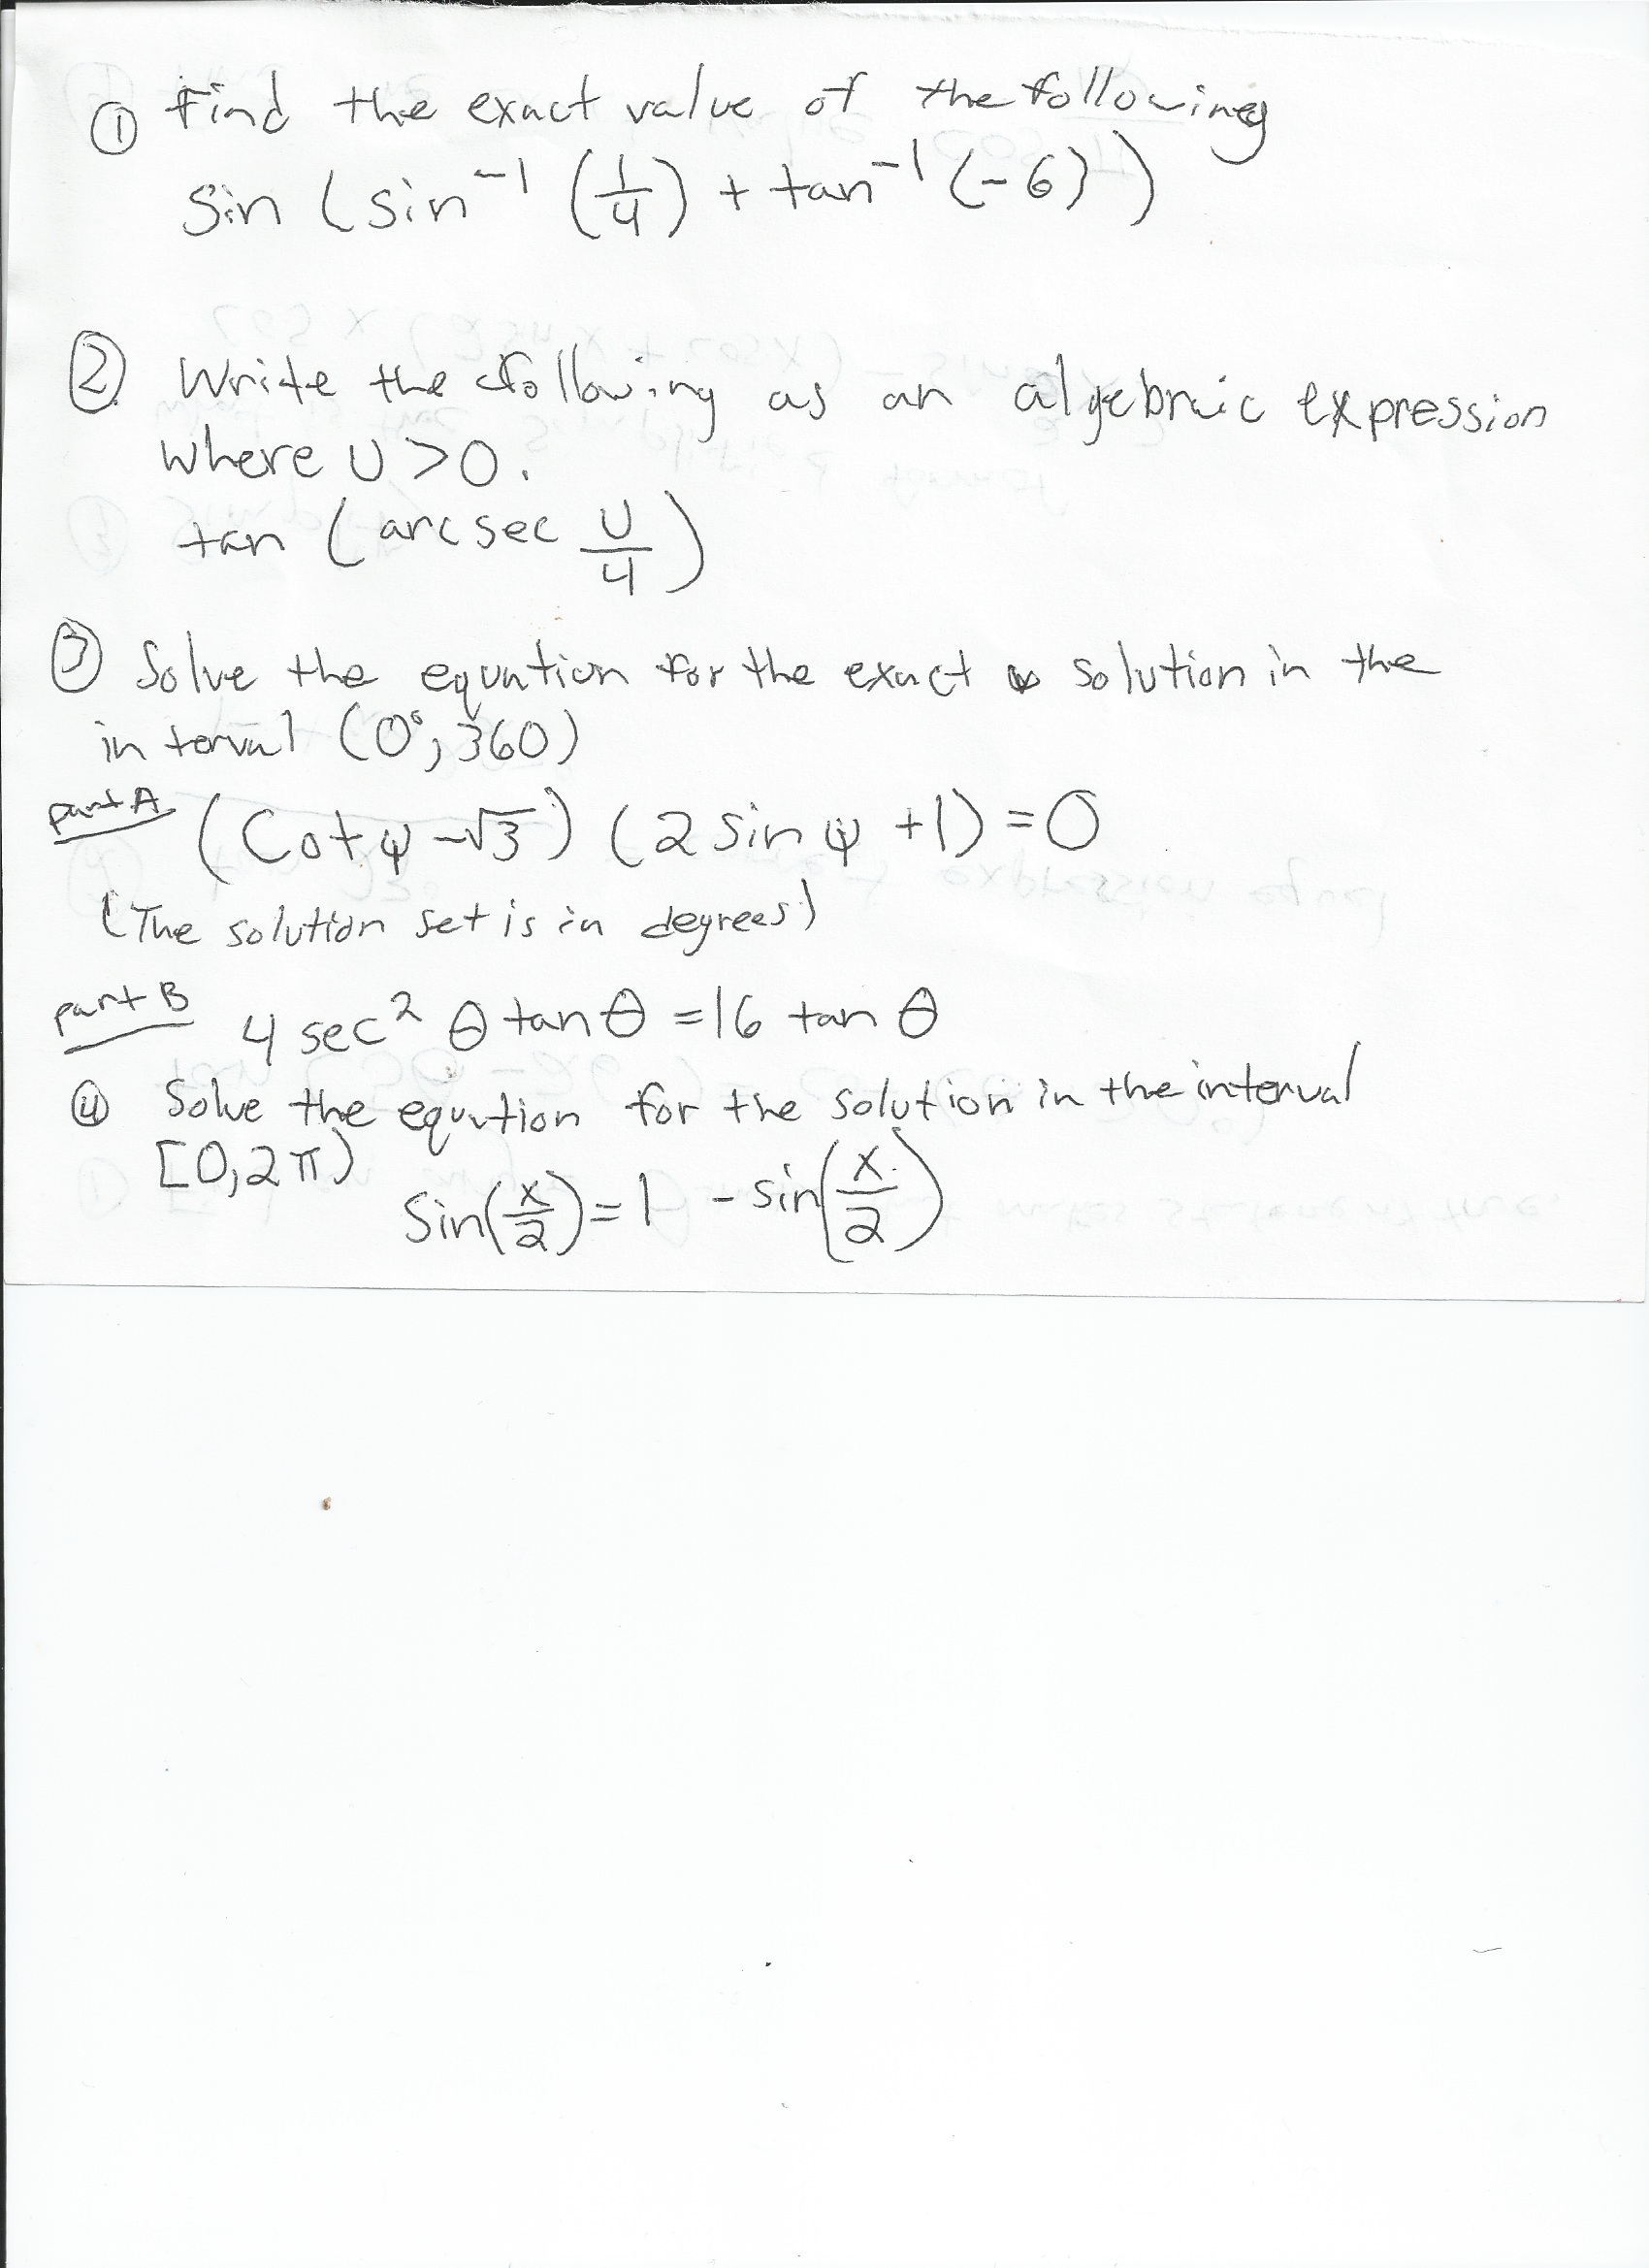 ① Find the exact value of the following
sin (sin⁻¹ (1/4) + tan⁻¹ (-6))
② Write the following as an algebraic expression
where U > 0.
tan (arcsec U/4)
③ Solve the equation for the exact solution in the
interval (0°, 360)
part A (Cot ψ - √3) (2 sin ψ + 1) = 0
(The solution set is in degrees)
part B 4 sec² θ tan θ = 16 tan θ
④ Solve the equation for the solution in the interval
[0, 2π)
Sin(x/2) = 1 - sin(x/2)